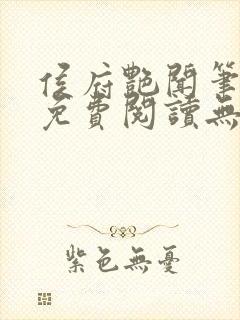 侯府艷聞筆
免費閱讀無
紫色無憂